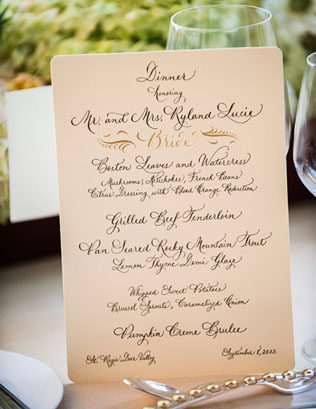 Dinner
Honoring
Mr. and Mrs. Ryland Lucie
Brice
Boston Leaves and Watercress
Mushrooms, Artichokes, French Beans
Citrus Dressing with Blood Orange Reduction
Grilled Beef Tenderloin
Pan Seared Rocky Mountain Trout
Lemon Thyme Demi Glaze
Whipped Sweet Potatoes
Brussel Sprouts, Caramelized Onion
Pumpkin Creme Brulee
St. Regis Deer Valley
September 1, 2012